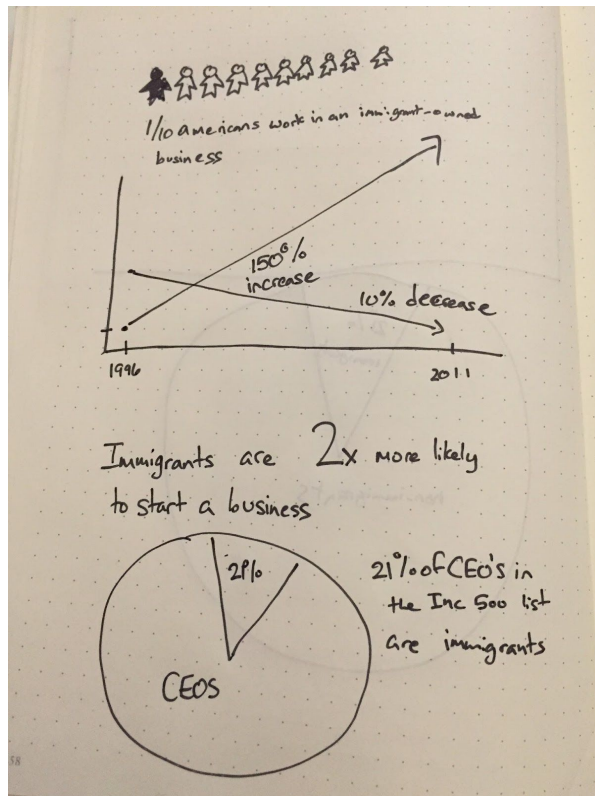 1/10 americans work in an immigrant-owned
business
150% increase
10% decrease
1996
2011
Immigrants are 2x more likely
to start a business
21%
CEOS
21% of CEO's in
the Inc 500 list
are immigrants
58